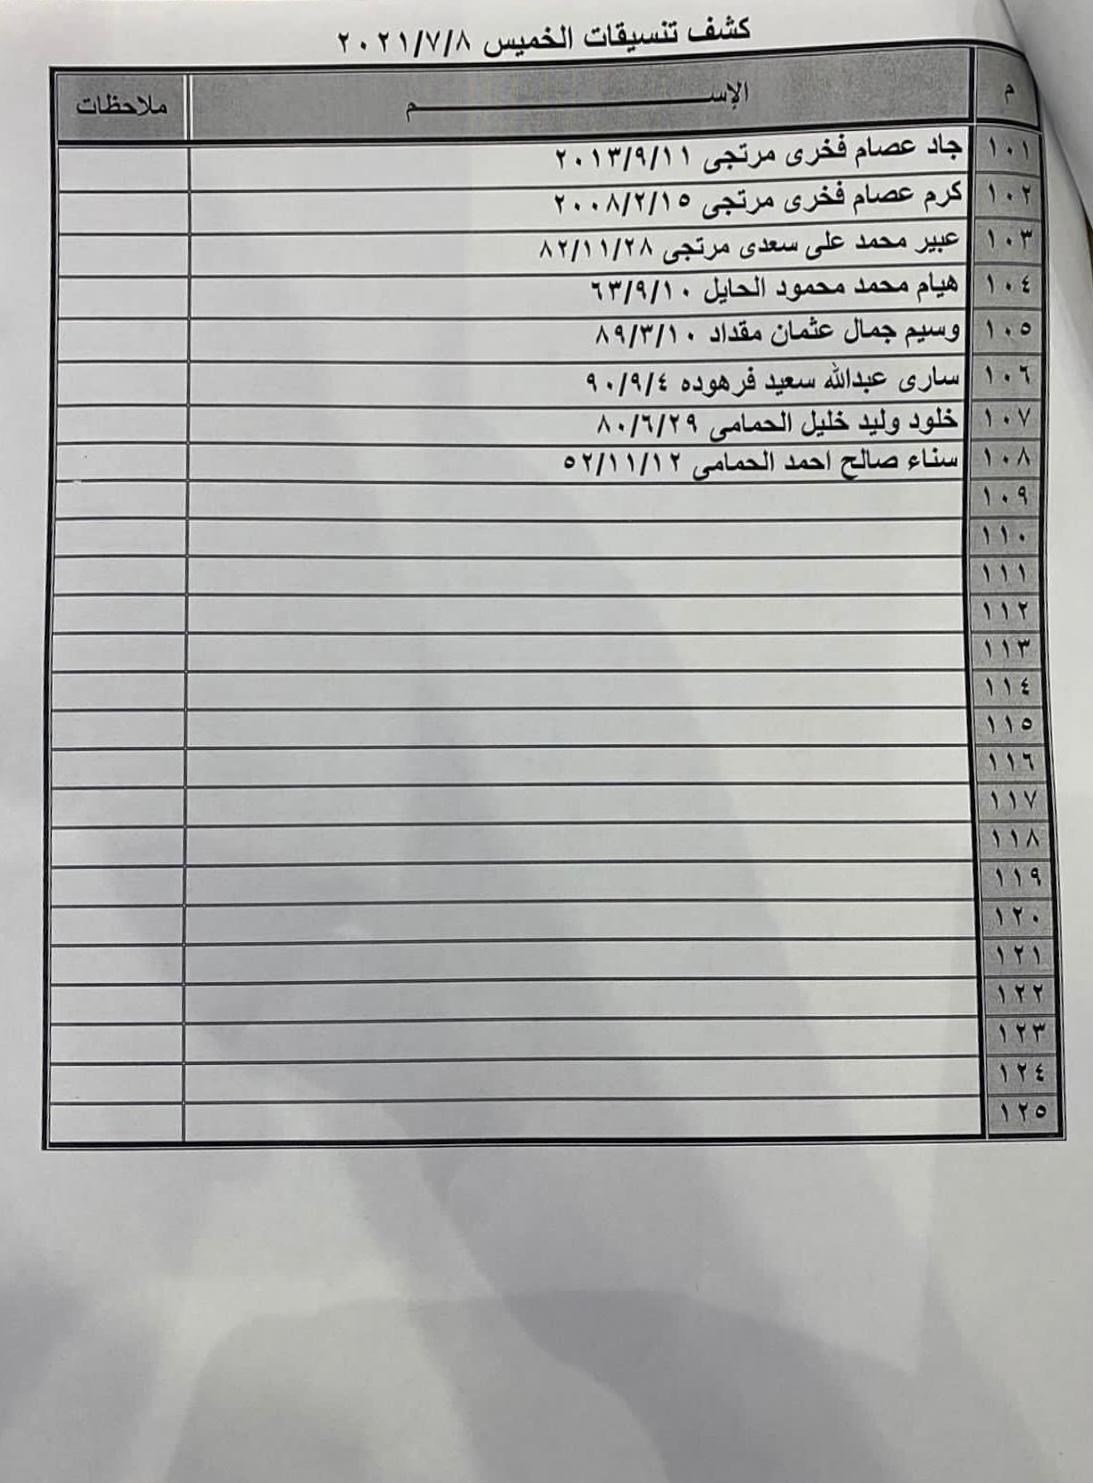 كشف تنسيقات الخميس ٢٠٢١/٧/٨
م الإســـم ملاحظات
١٠١ جاد عصام فخرى مرتجى ٢٠١٣/٩/١١
١٠٢ كرم عصام فخرى مرتجى ٢٠٠٨/٢/١٥
١٠٣ عبير محمد على سعدى مرتجى ٨٢/١١/٢٨
١٠٤ هيام محمد محمود الحايل ٦٣/٩/١٠
١٠٥ وسيم جمال عثمان مقداد ٨٩/٣/١٠
١٠٦ سارى عبدالله سعيد فرهوده ٩٠/٩/٤
١٠٧ خلود وليد خليل الحمامى ٨٠/٦/٢٩
١٠٨ سناء صالح احمد الحمامى ٥٢/١١/١٢
١٠٩
١١٠
١١١
١١٢
١١٣
١١٤
١١٥
١١٦
١١٧
١١٨
١١٩
١٢٠
١٢١
١٢٢
١٢٣
١٢٤
١٢٥